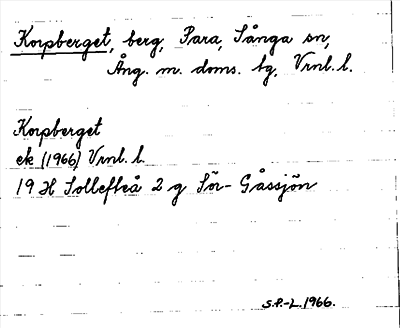 Korpberget, berg, Para, Sånga sn,
Ång. m. doms. bg, Vrnl. l.
Korpberget
ek (1966) Vrnl. l.
19 H Sollefteå 2 g Sör-Gåssjön
S.P.-L. 1966.